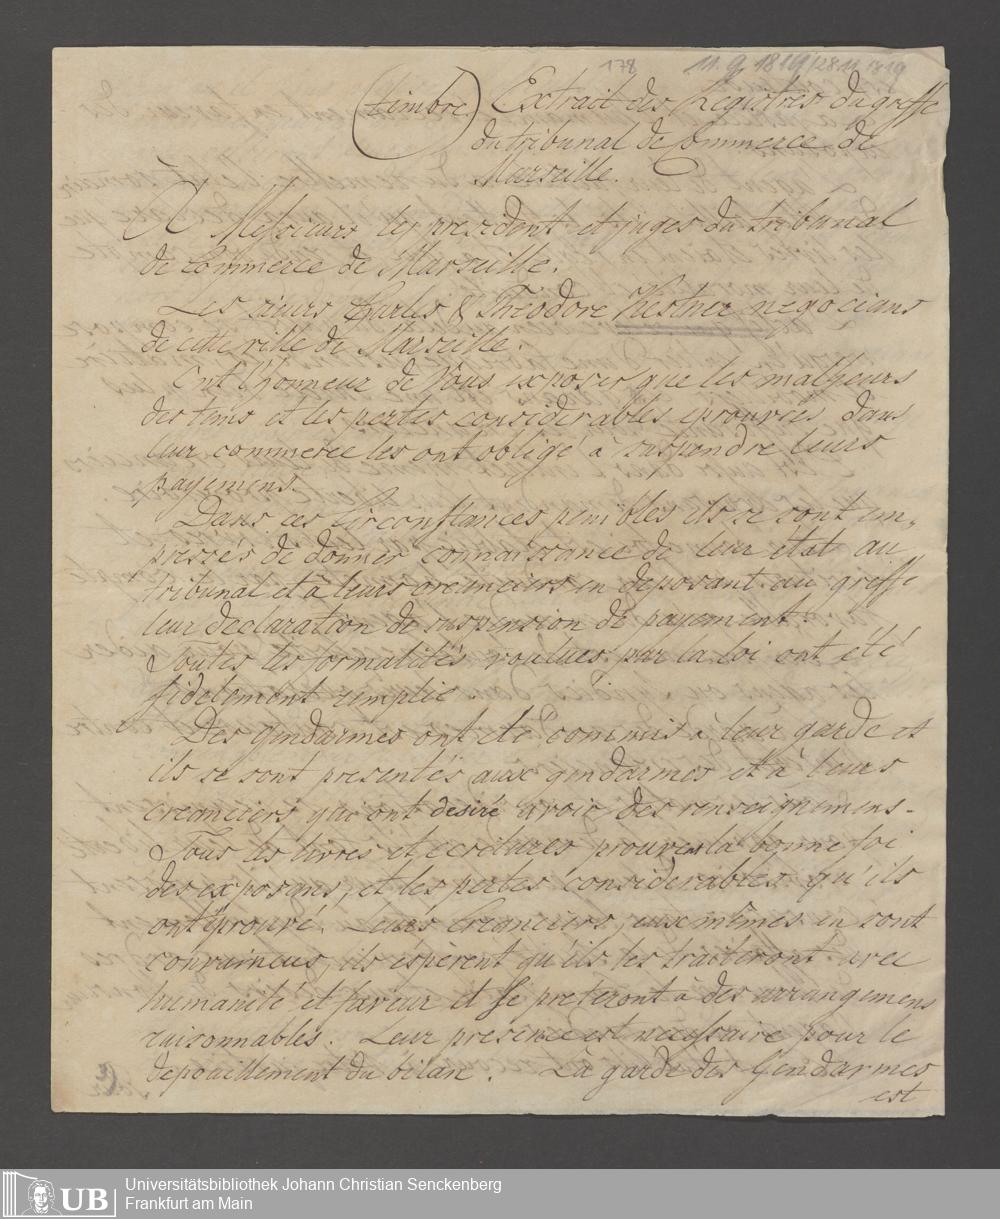 178 11.9.1819/28.11.1819
(timbre) Extrait des Registres du greffe
du tribunal de Commerce de
Marseille.
A Messieurs les president et juges du tribunal
de Commerce de Marseille.
Les sieurs Charles & Théodore Kestner negocians
de cette ville de Marseille.
Ont l'honneur de vous exposer que les malheurs
des tems et les pertes considerables eprouvées dans
leur commerce les ont obligé à suspendre leurs
payemens.
Dans ces Circonstances penibles ils se sont em„
pressés de donner connaissance de leur état au
tribunal et à leurs creanciers en deposant au greffe
leur declaration de suspension de payement.
Toutes les formalités voulues par la loi ont été
fidelement remplie
Des gendarmes ont eté commis à leur garde et
ils se sont presentés aux gendarmes et à leurs
creanciers qui ont desiré avoir des renseignemens.
Tous les livres et ecritures prouvent la bonne foi
des exposans, et les pertes considerables qu'ils
ont eprouvé. Leurs Creanciers eux mêmes en sont
convaincus, ils espèrent qu'ils les traiteront avec
humanité et faveur et se preteront a des arrangemens
raisonnables. Leur presence est necessaire pour le
depouillement du bilan. La garde des Gendarmes
est
UB
Universitätsbibliothek Johann Christian Senckenberg
Frankfurt am Main